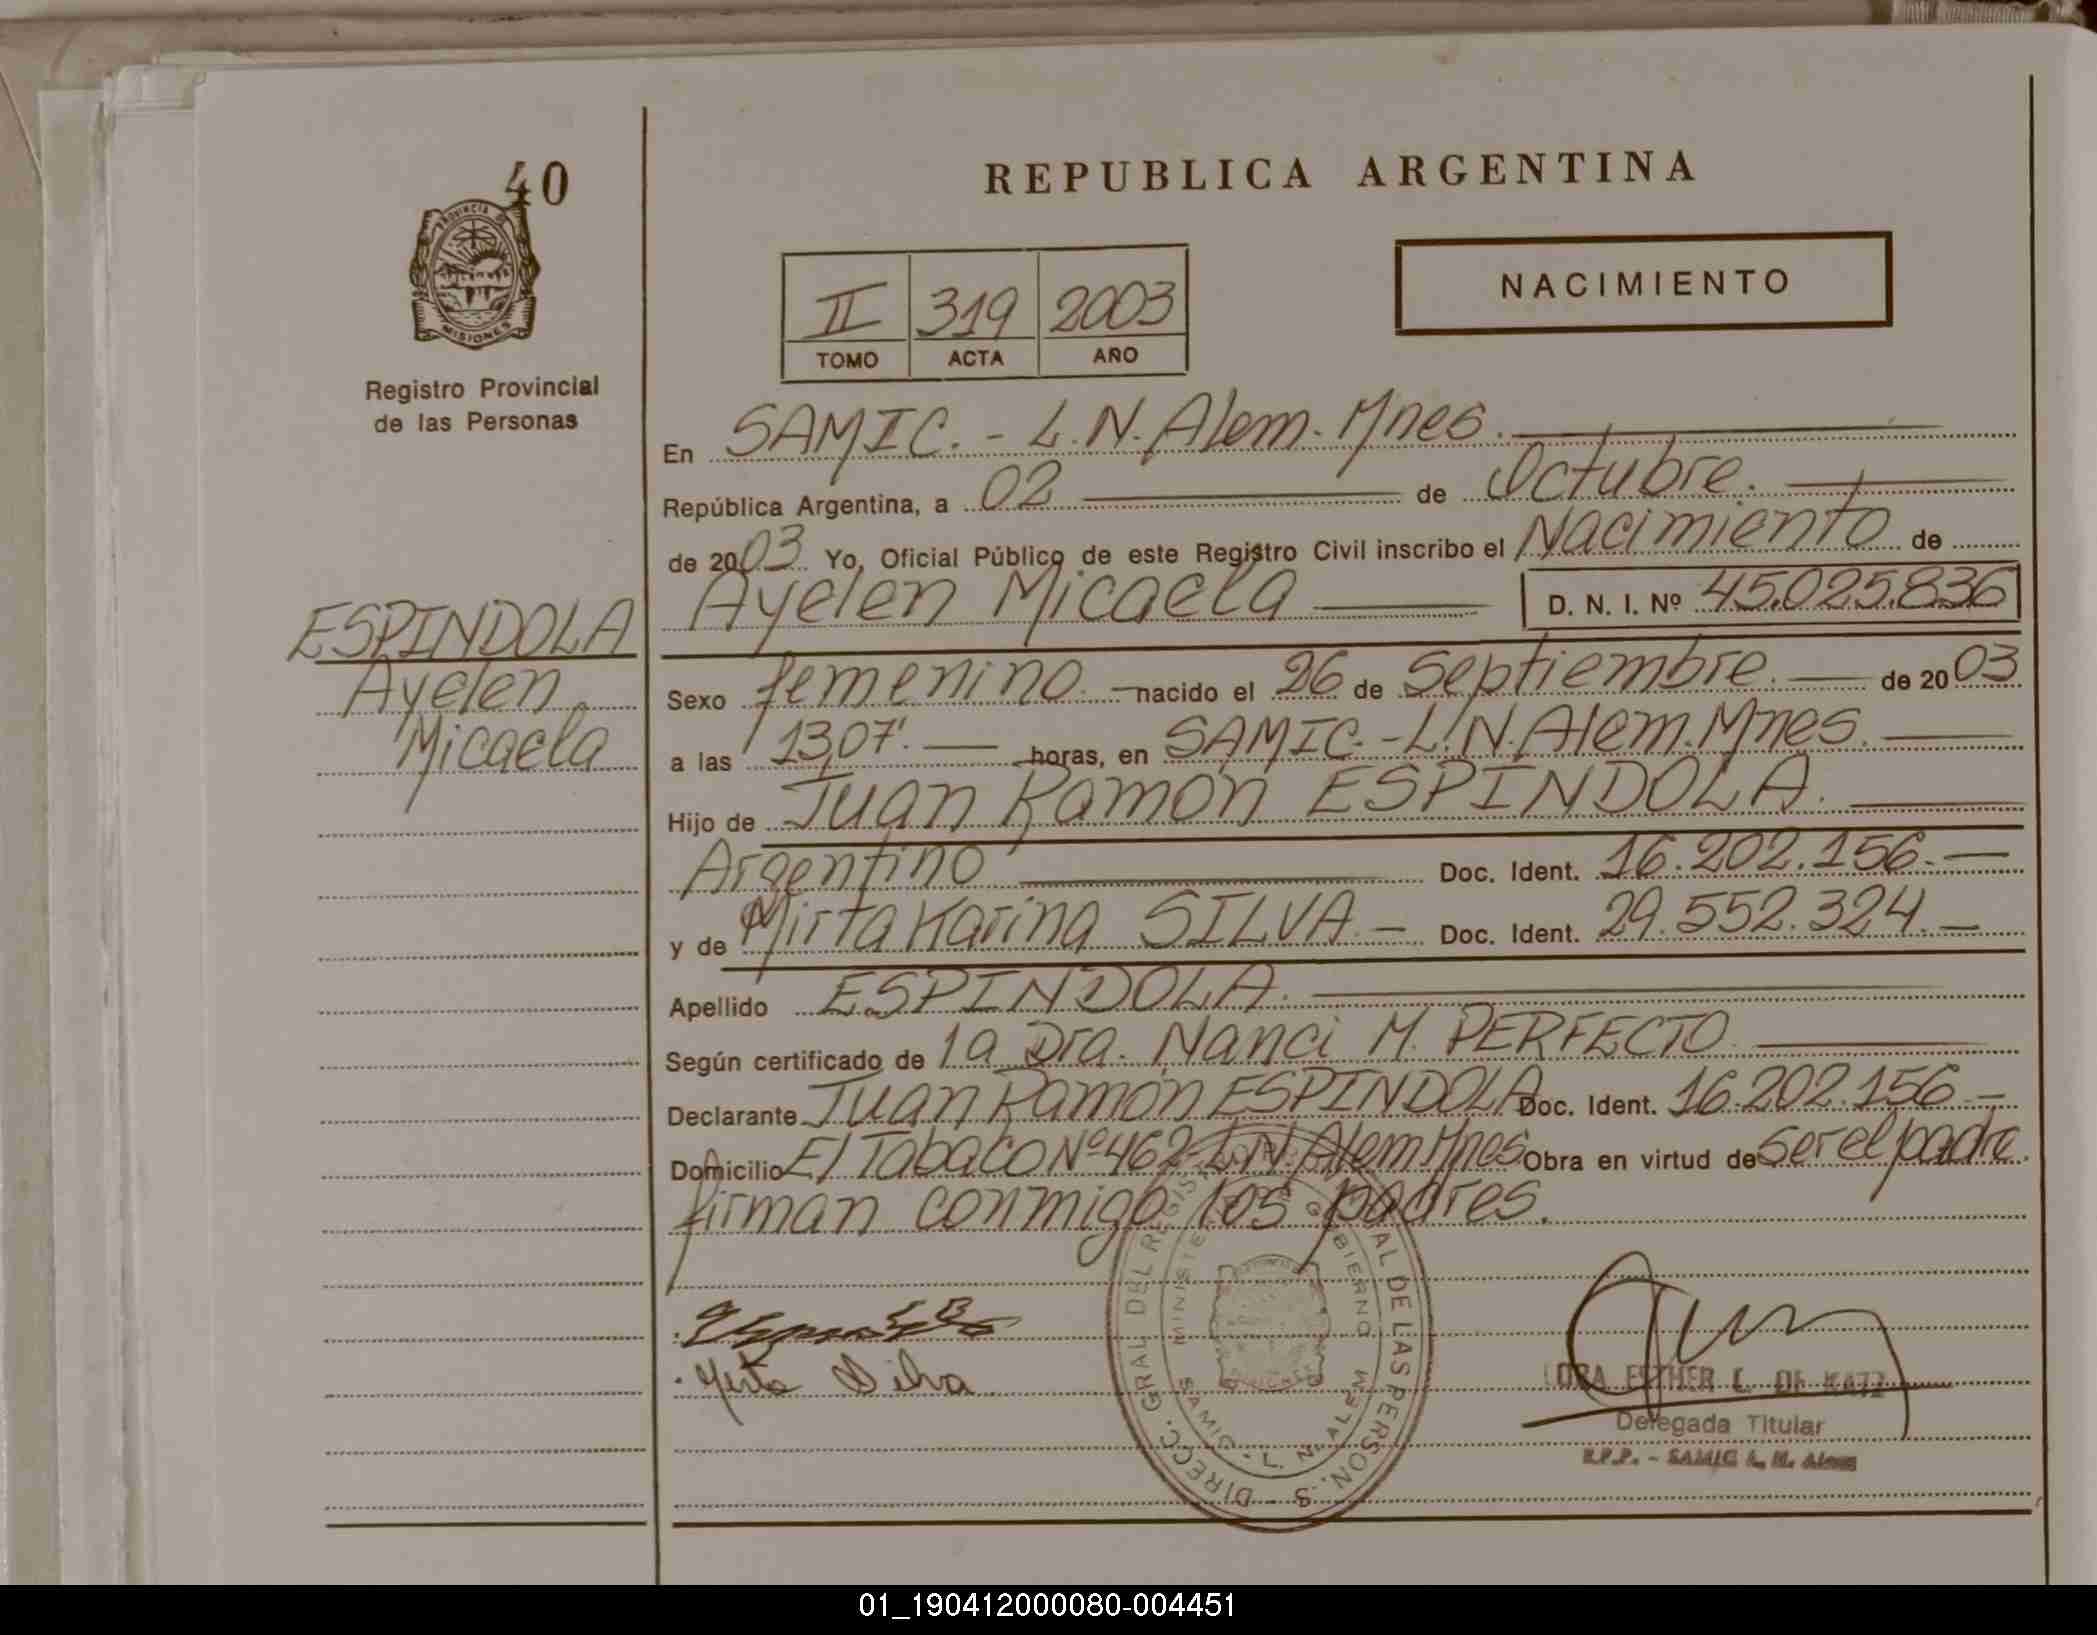 40
PROVINCIA DE
MISIONES
Registro Provincial
de las Personas
REPUBLICA ARGENTINA
NACIMIENTO
II 319 2003
TOMO ACTA AÑO
En SAMIC. - L.N. Alem. Mnes.
República Argentina, a 02 de Octubre.
de 2003 Yo, Oficial Público de este Registro Civil inscribo el Nacimiento de
Ayelen Micaela D. N. I. Nº 45.025.836
ESPINDOLA
Ayelen
Micaela
Sexo femenino. nacido el 26 de Septiembre. de 2003
a las 13,07'. horas, en SAMIC. - L.N. Alem. Mnes.
Hijo de Juan Ramón ESPINDOLA.
Argentino Doc. Ident. 16.202.156.-
y de Mirta Karina SILVA.- Doc. Ident. 29.552.324.-
Apellido ESPINDOLA.
Según certificado de la Dra. Nanci M. PERFECTO
Declarante Juan Ramón ESPINDOLA Doc. Ident. 16.202.156.-
Domicilio El Tabaco Nº 462-L.N. Alem Mnes Obra en virtud de ser el padre
firman conmigo los padres.
Mirta Silva
DIRECC. GRAL DEL REGIST AL DE LAS PERSON. S
MINISTE OBIERNO
SAMIC - L. N. ALEM
ESTHER L. DE KATZ
Delegada Titular
R.P.P. - SAMIC L. N. Alem
01_190412000080-004451